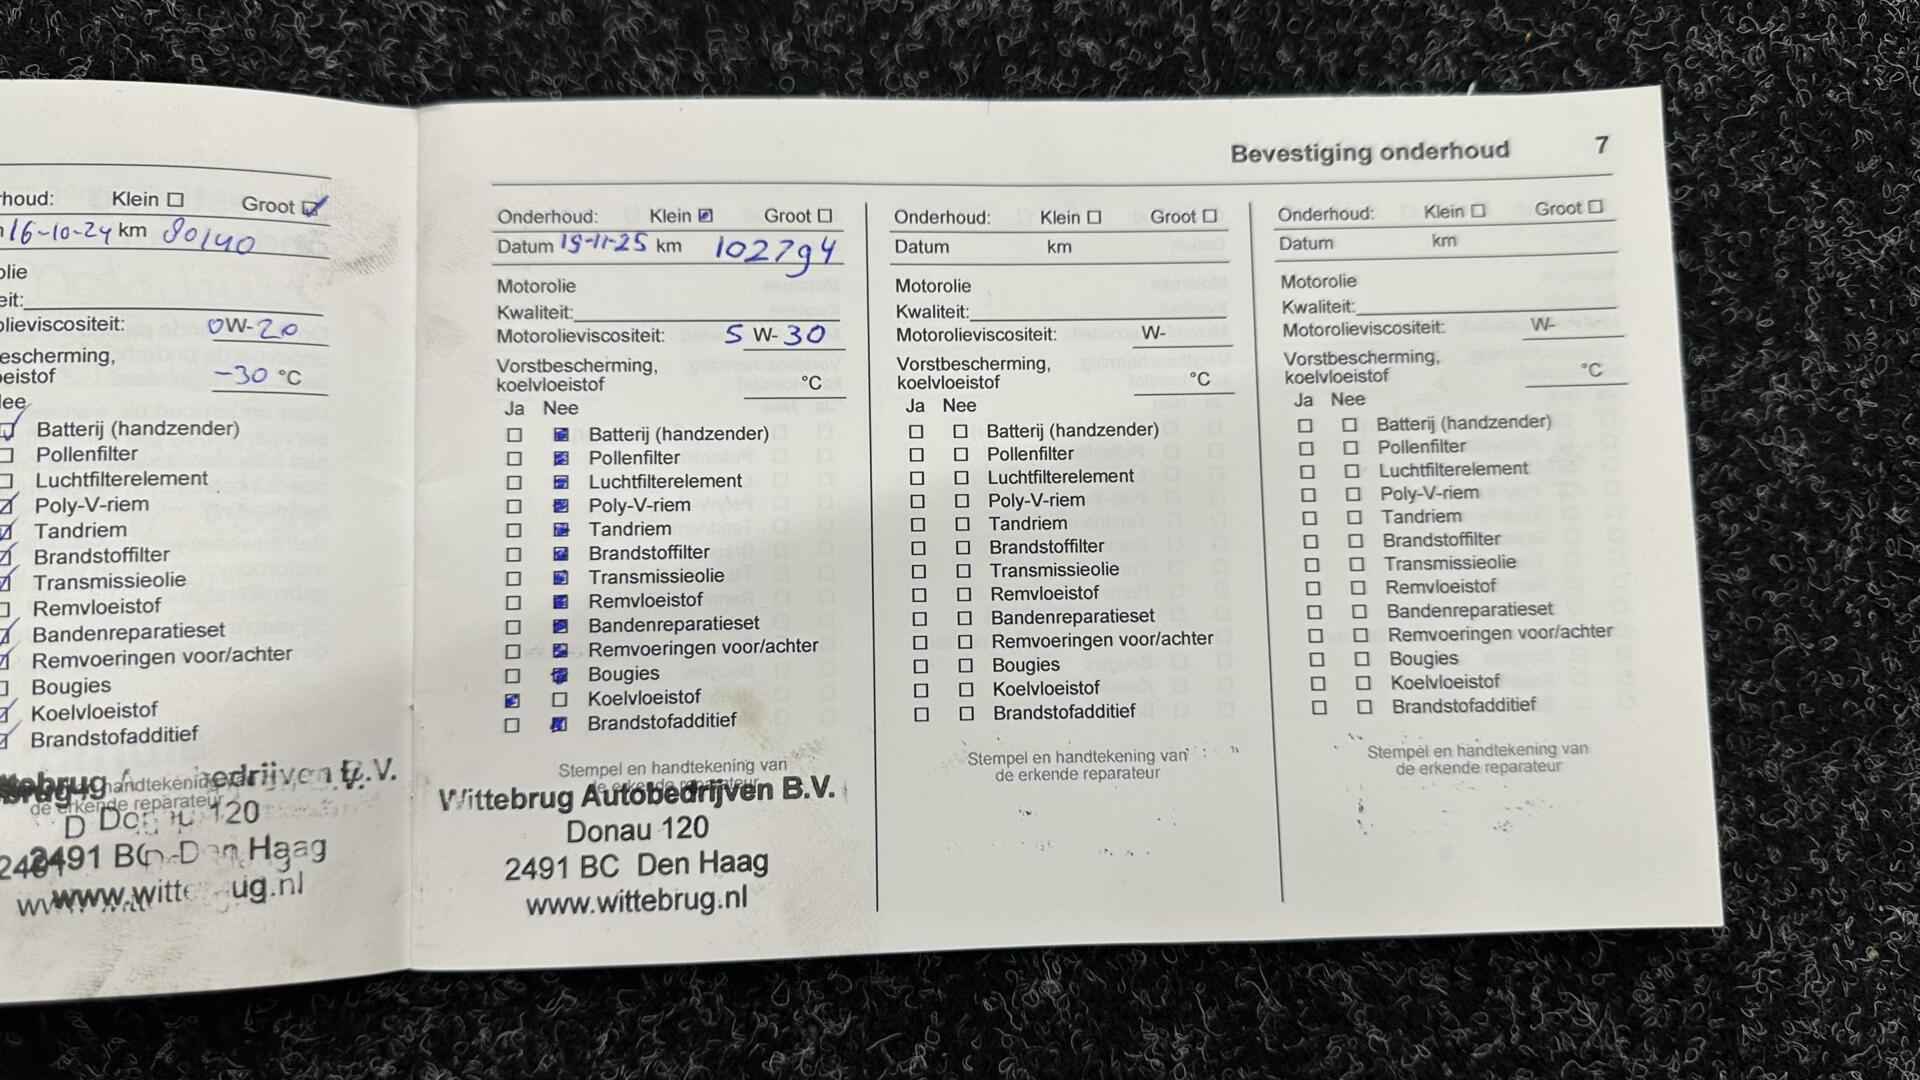 Bevestiging onderhoud 7
rhoud: Klein Groot
16-10-24 km 90140
olie
eit:
olieviscositeit: 0W-20
bescherming,
eistof -30 °C
Nee
Batterij (handzender)
Pollenfilter
Luchtfilterelement
Poly-V-riem
Tandriem
Brandstoffilter
Transmissieolie
Remvloeistof
Bandenreparatieset
Remvoeringen voor/achter
Bougies
Koelvloeistof
Brandstofadditief
de erkende reparateur
120
2491 Den Haag
Onderhoud: Klein Groot
Datum 19-11-25 km 102794
Motorolie
Kwaliteit:
Motorolieviscositeit: 5 W-30
Vorstbescherming,
koelvloeistof °C
Ja Nee
Batterij (handzender)
Pollenfilter
Luchtfilterelement
Poly-V-riem
Tandriem
Brandstoffilter
Transmissieolie
Remvloeistof
Bandenreparatieset
Remvoeringen voor/achter
Bougies
Koelvloeistof
Brandstofadditief
Stempel en handtekening van
de erkende reparateur
Wittebrug Autobedrijven B.V.
Donau 120
2491 BC Den Haag
www.wittebrug.nl
Onderhoud: Klein Groot
Datum km
Motorolie
Kwaliteit:
Motorolieviscositeit: W-
Vorstbescherming,
koelvloeistof °C
Ja Nee
Batterij (handzender)
Pollenfilter
Luchtfilterelement
Poly-V-riem
Tandriem
Brandstoffilter
Transmissieolie
Remvloeistof
Bandenreparatieset
Remvoeringen voor/achter
Bougies
Koelvloeistof
Brandstofadditief
Stempel en handtekening van
de erkende reparateur
Onderhoud: Klein Groot
Datum km
Motorolie
Kwaliteit:
Motorolieviscositeit: W-
Vorstbescherming,
koelvloeistof °C
Ja Nee
Batterij (handzender)
Pollenfilter
Luchtfilterelement
Poly-V-riem
Tandriem
Brandstoffilter
Transmissieolie
Remvloeistof
Bandenreparatieset
Remvoeringen voor/achter
Bougies
Koelvloeistof
Brandstofadditief
Stempel en handtekening van
de erkende reparateur